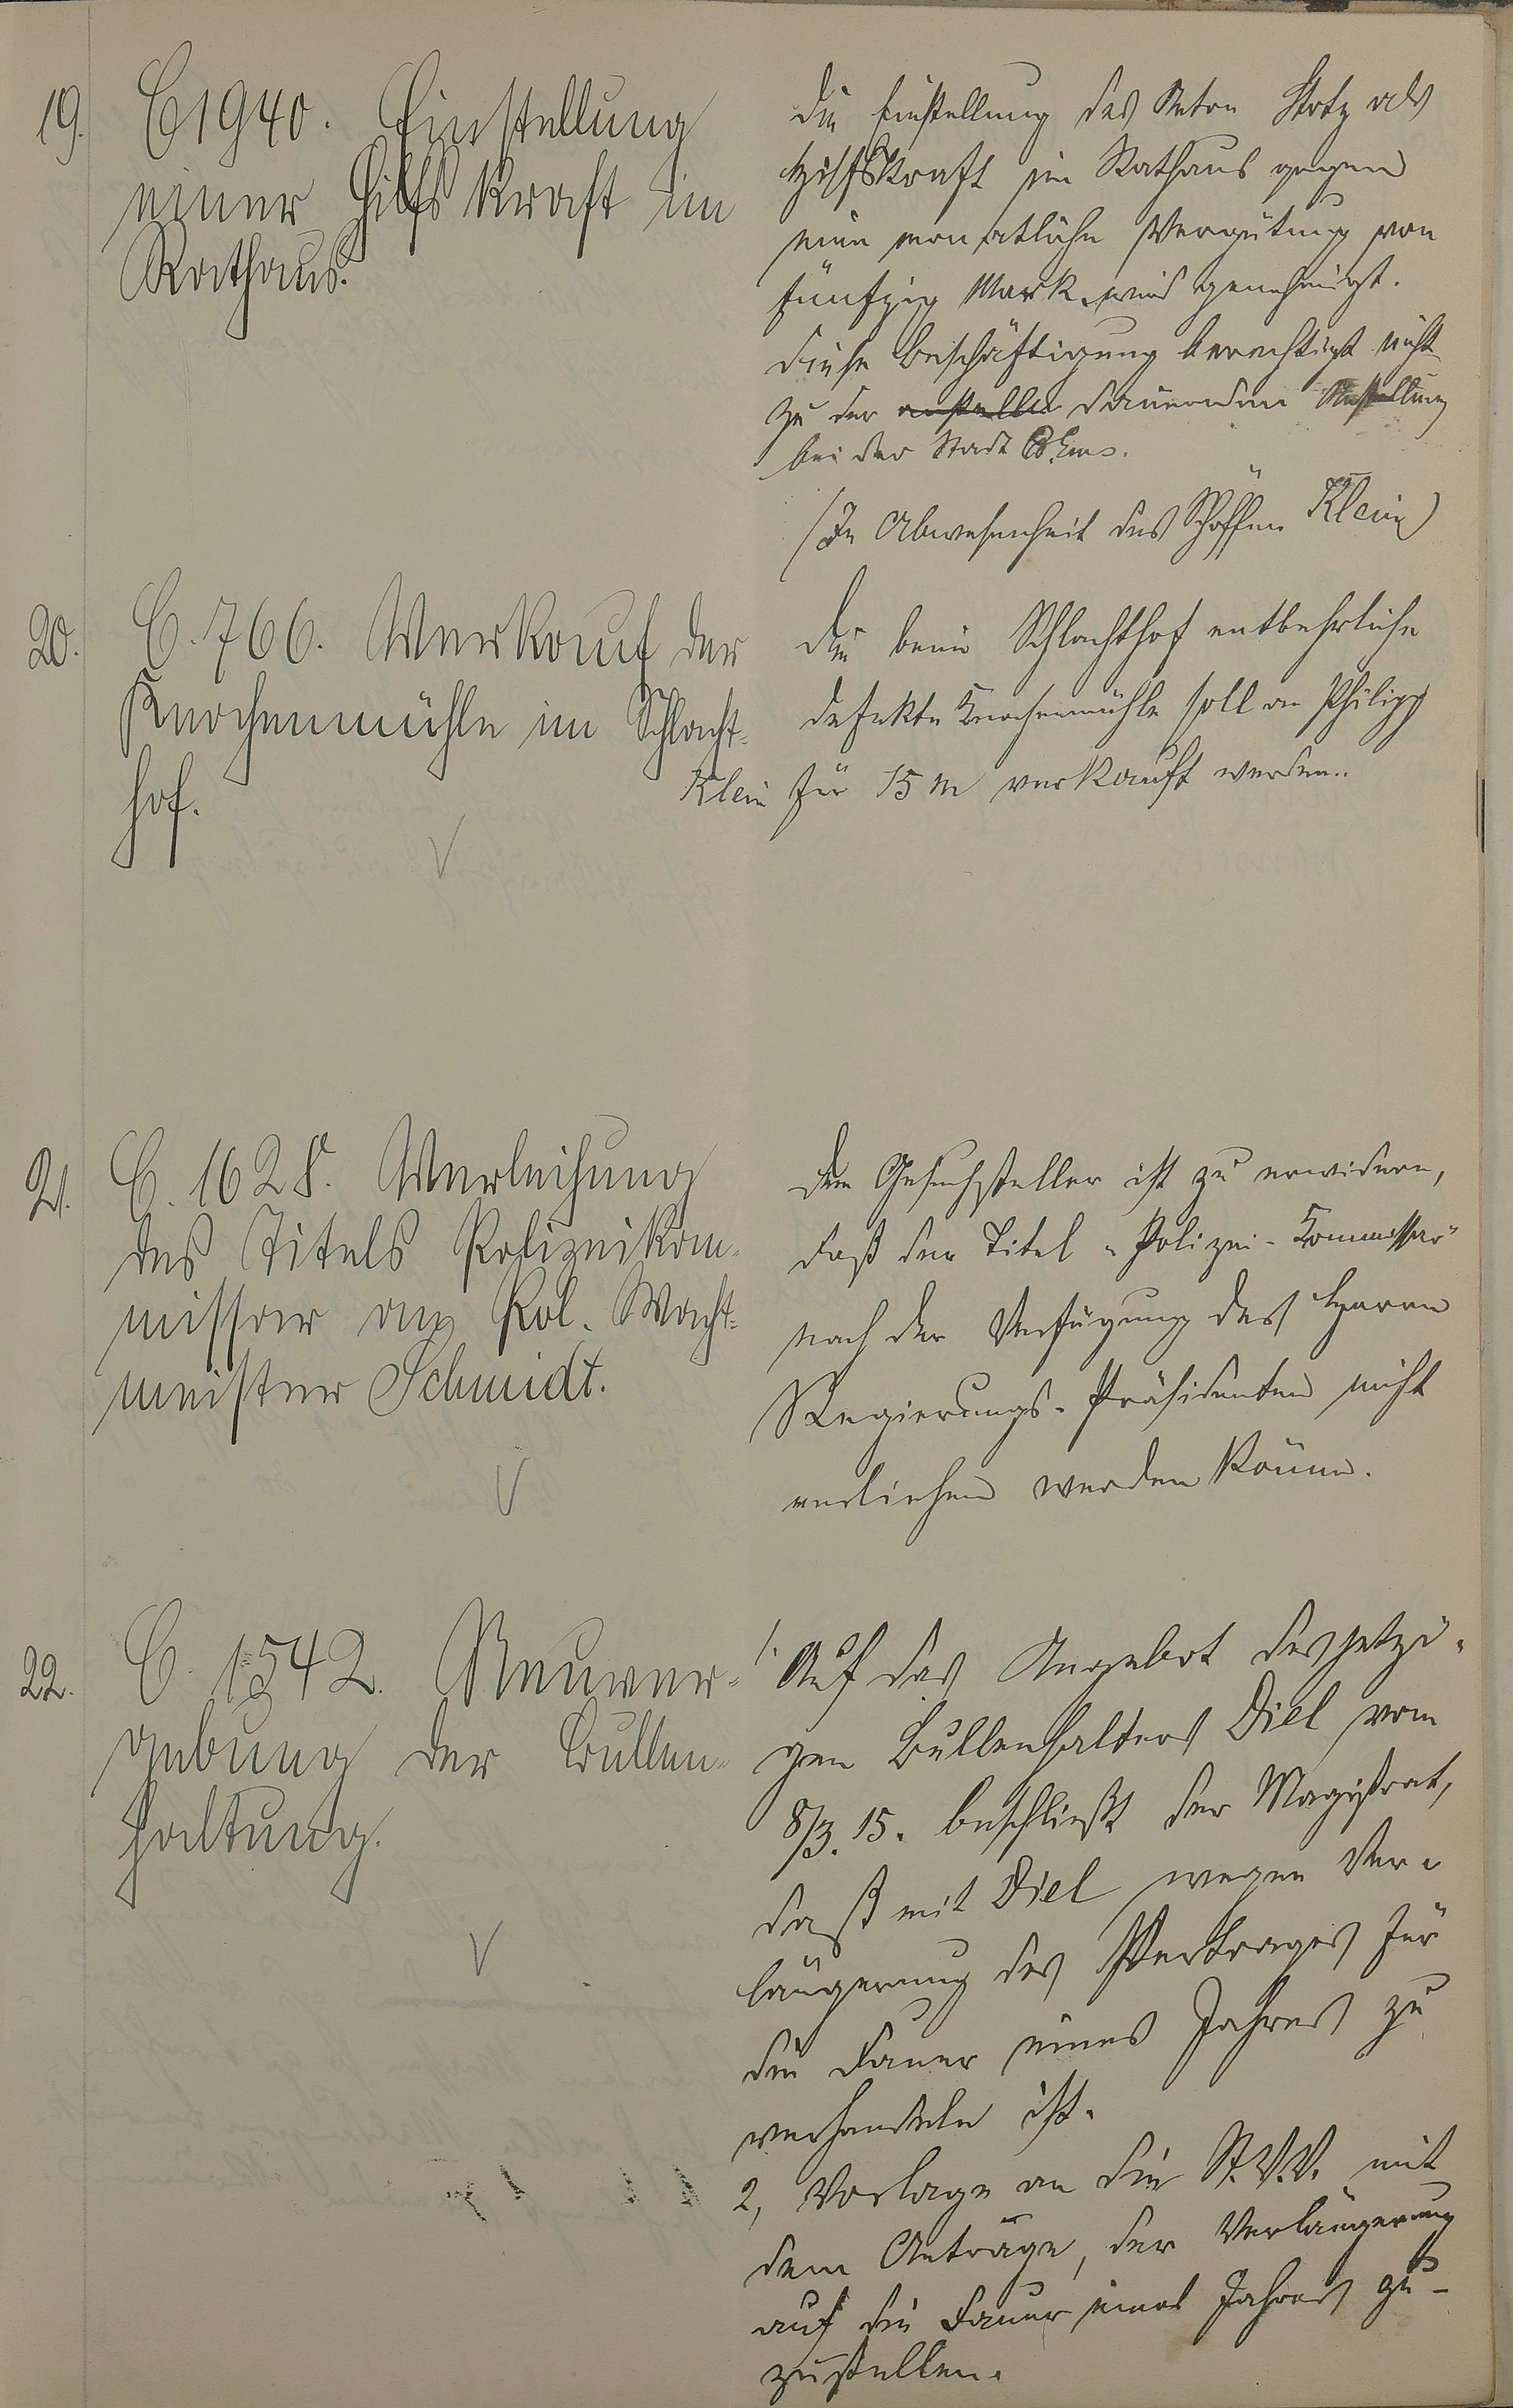 19.
C 1940. Einstellung
einer Hilfskraft im
Rathaus.
Die Einstellung des Anton Stotz als
Hilfskraft im Rathaus gegen
eine monatliche Vergütung von
fünfzig Mark wird genehmigt.
Diese Beschäftigung berechtigt nicht
zu der dauernden Anstellung
bei der Stadt B. Ems.
(In Abwesenheit des Schöffen Klein)
20.
C. 766. Verkauf der
Knochenmühle im Schlacht-
hof.
Die beim Schlachthof entbehrliche
defekte Knochenmühle soll an Philipp
Klein für 15 M verkauft werden.
21.
C. 1628. Verleihung
des Titels Polizeikom-
missar an Pol. Wacht-
meister Schmidt.
Dem Gesuchsteller ist zu erwidern,
daß der Titel „Polizei-Kommissar"
nach der Verfügung des Herrn
Regierungs-Präsidenten nicht
verliehen werden könne.
22.
C. 1542. Neuver-
gebung der Bullen-
haltung.
1. Auf das Angebot des jetzi-
gen Bullenhalters Diel vom
8/3. 15. beschließt der Magistrat,
daß mit Diel wegen Ver-
längerung des Vertrages für
die Dauer eines Jahres zu
verhandeln ist.
2, Vorlage an die St.V.V. mit
dem Antrage, der Verlängerung
auf die Dauer eines Jahres zu-
zustellen.